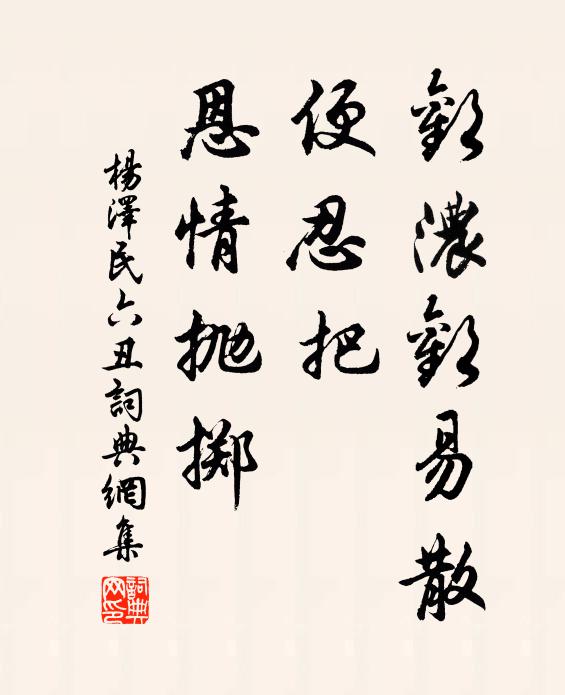 歡濃歡易散
便忍把
恩情抛擲
楊澤民六丑詞典網集
詞典网印